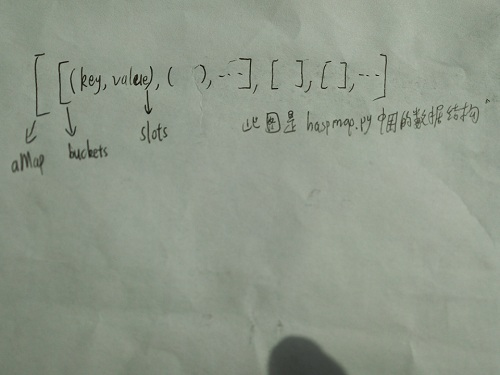 [ [(key, value), ( ), ...], [ ], [ ], ...]
aMap buckets slots
此图是 haspmap.py 中用的数据结构。